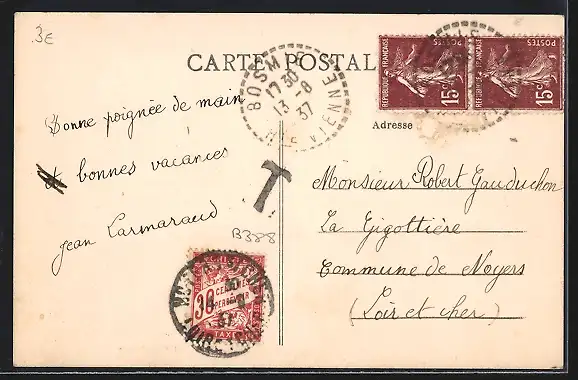 3€
CARTE POSTALE
BOSMIE
17 30
13 - 8
37
HTE VIENNE
RÉPUBLIQUE FRANÇAISE
POSTES
15c
RÉPUBLIQUE FRANÇAISE
POSTES
15c
Adresse
Bonne poignée de main
et bonnes vacances
Jean Larmaraud
T
B388
30
CENTIMES
À PERCEVOIR
TAXE
Monsieur Robert Gauduchon
La Gigottière
Commune de Noyers
(Loir et cher)